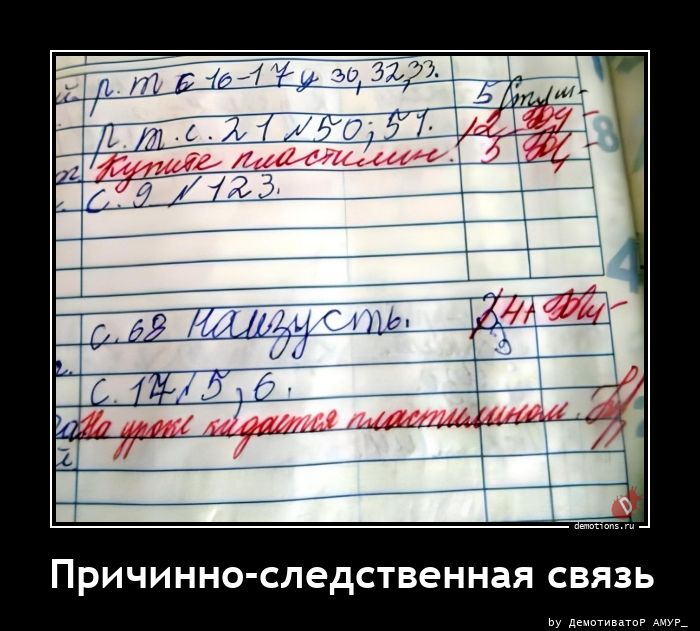 р. т с 16-17 у 30, 32, 33.
5
р. т. с. 21 №50; 51.
12
Купите пластилин!
5
с. 9 №123.
с. 68 наизусть.
3
с. 17 №5, 6.
На уроке кидается пластилином.
demotions.ru
Причинно-следственная связь
by ДемотиватоР АМУР_